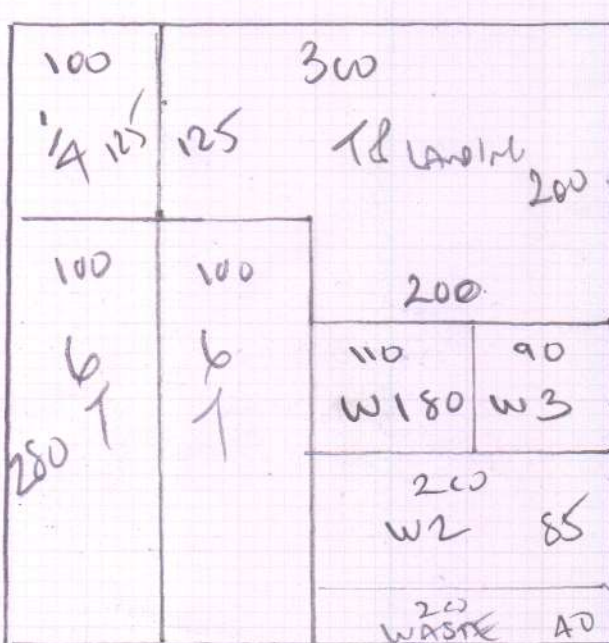 100
1/4 125
125
300
LANDING
200
100
6
280
100
6
200
110
W1 80
90
W3
200
W2 85
WASTE 40